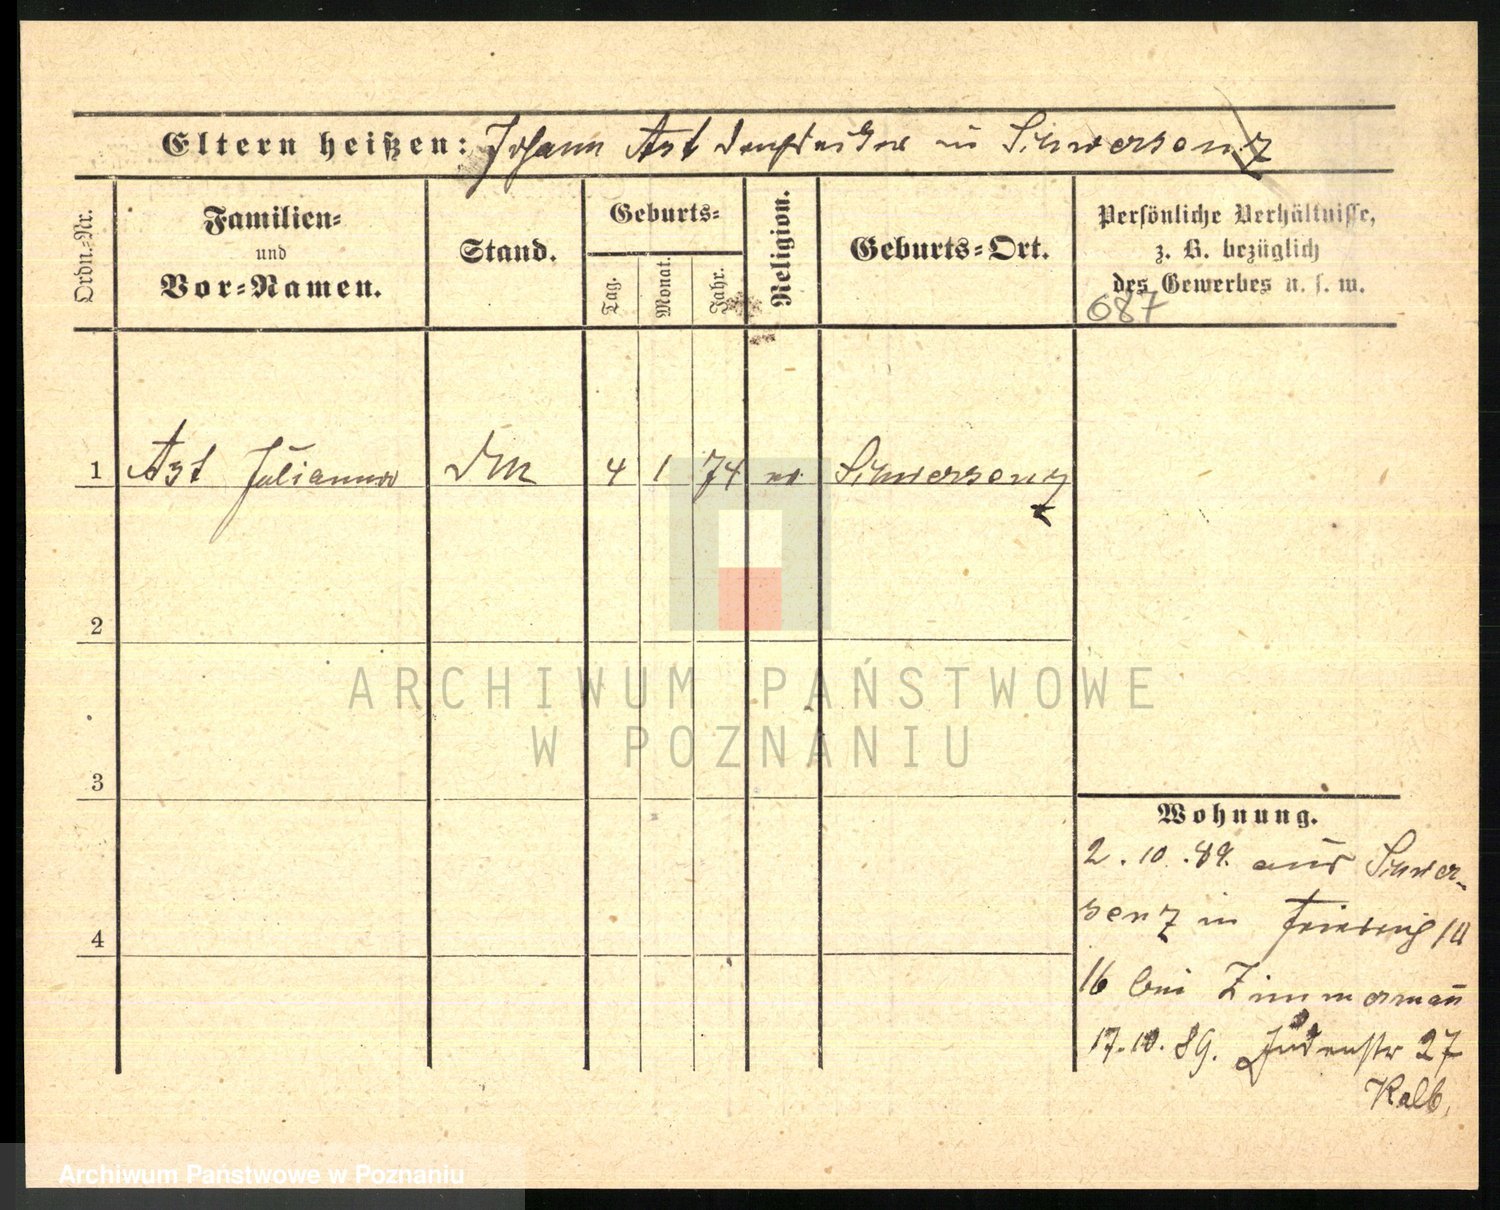 Eltern heißen: Johann Ast in Schwersenz
Ordn.-Nr.
Familien-
und
Vor-Namen.
Stand.
Geburts-
Tag.
Monat.
Jahr.
Religion.
Geburts-Ort.
Persönliche Verhältnisse,
z. B. bezüglich
des Gewerbes u. s. w.
687
1 Ast Julianna DM 4 1 74 Schwersenz
2
3
4
Wohnung.
2.10.89. aus Schwer-
senz in Friedrich
16 bei Zimmermann
17.10.89. Judenstr 27
Kalb.
ARCHIWUM PAŃSTWOWE
W POZNANIU
Archiwum Państwowe w Poznaniu